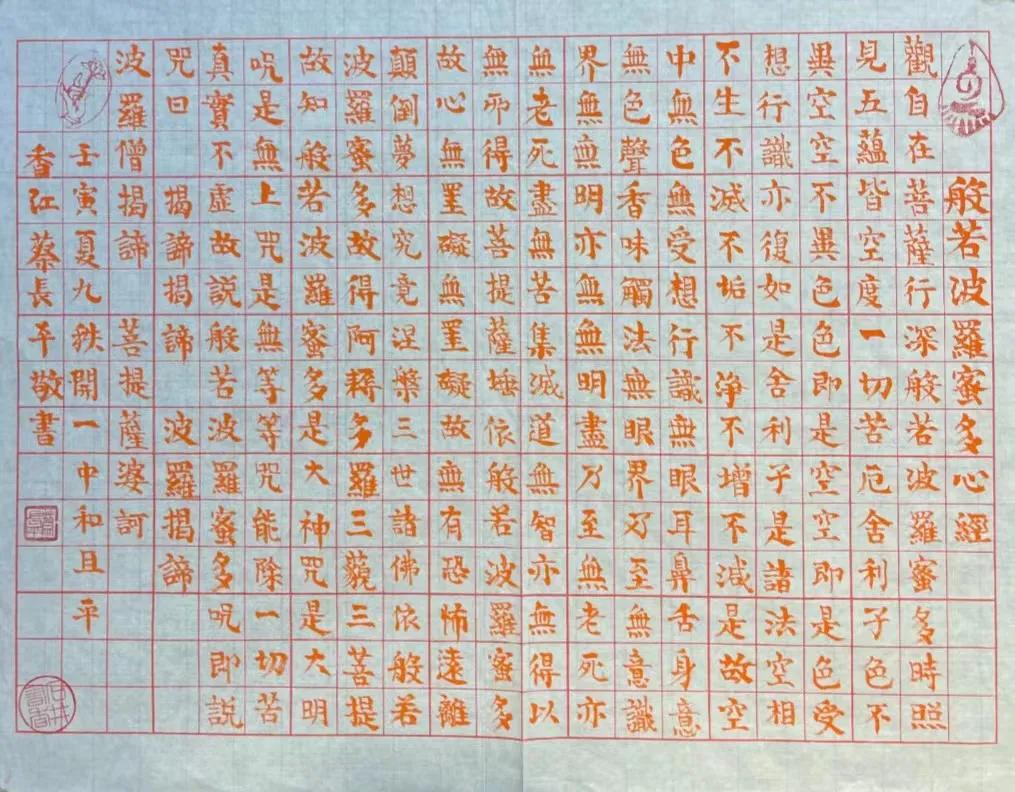 般若波羅蜜多心經
觀自在菩薩行深般若波羅蜜多時照
見五蘊皆空度一切苦厄舍利子色不
異空空不異色色即是空空即是色受
想行識亦復如是舍利子是諸法空相
不生不滅不垢不淨不增不減是故空
中無色無受想行識無眼耳鼻舌身意
無色聲香味觸法無眼界乃至無意識
界無無明亦無無明盡乃至無老死亦
無老死盡無苦集滅道無智亦無得以
無所得故菩提薩埵依般若波羅蜜多
故心無罣礙無罣礙故無有恐怖遠離
顛倒夢想究竟涅槃三世諸佛依般若
波羅蜜多故得阿耨多羅三藐三菩提
故知般若波羅蜜多是大神咒是大明
呪是無上咒是無等等咒能除一切苦
真實不虛故說般若波羅蜜多呪即說
咒曰 揭諦揭諦 波羅揭諦
波羅僧揭諦 菩提薩婆訶
壬寅夏九秩開一中和且平
香江蔡長平敬書